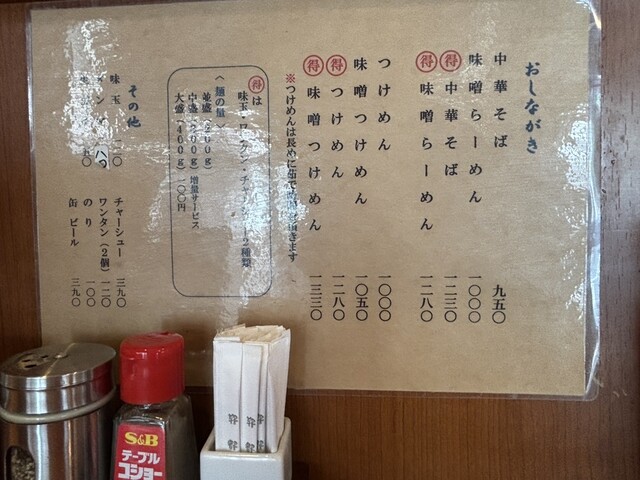 おしながき
中華そば 九五〇
味噌らーめん 一〇〇〇
得 中華そば 一二三〇
得 味噌らーめん 一二八〇
つけめん 一〇〇〇
味噌つけめん 一〇五〇
得 つけめん 一二八〇
得 味噌つけめん 一三三〇
※つけめんは長めに茹で
きます
得は
味玉・ワンタン・チャーシュー2種類
〈麺の量〉
並盛(200g)
中盛(300g)増量サービス
大盛(460g)一〇〇円
その他
味玉
チャーシュー 三九〇
ワンタン(2個) 一二〇
のり 一〇〇
缶ビール 三九〇
S&B
テーブル
コショー